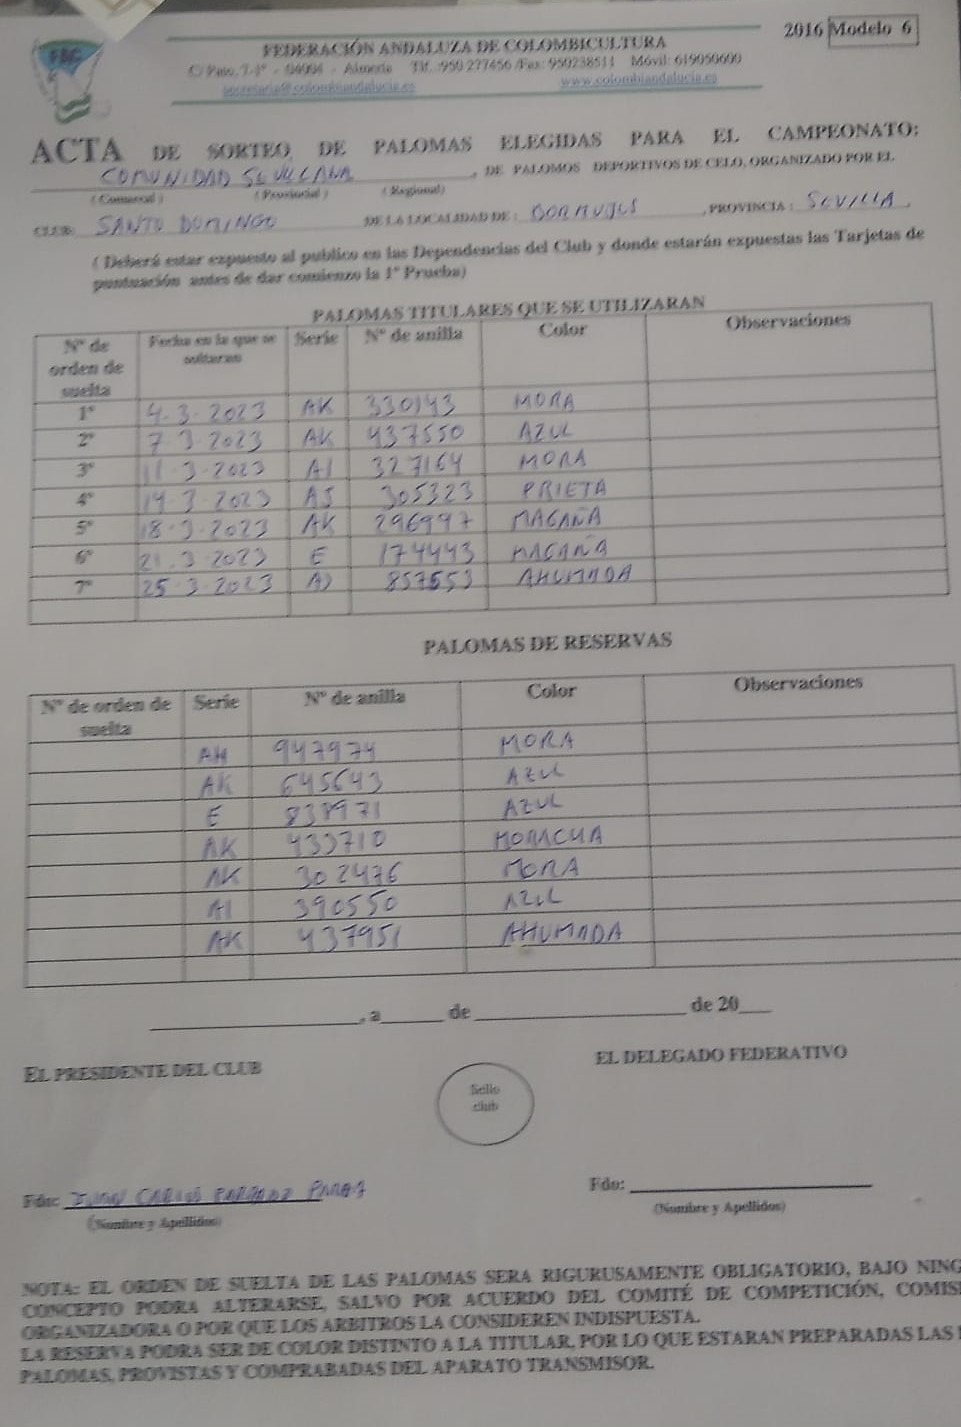 2016 Modelo 6
FAC
FEDERACIÓN ANDALUZA DE COLOMBICULTURA
C/ Pato, 7-1º - 04004 - Almería Tlf.:950 277456 /Fax: 950238511 Móvil: 619050600
secretaria@colombiandalucia.es www.colombiandalucia.es
ACTA DE SORTEO, DE PALOMAS ELEGIDAS PARA EL CAMPEONATO:
COMUNIDAD SEVILLANA, DE PALOMOS DEPORTIVOS DE CELO, ORGANIZADO POR EL
(Comarcal) (Provincial) (Regional)
CLUB: SANTO DOMINGO DE LA LOCALIDAD DE: BORMUJOS, PROVINCIA: SEVILLA.
( Deberá estar expuesto al publico en las Dependencias del Club y donde estarán expuestas las Tarjetas de
puntuación antes de dar comienzo la 1ª Prueba)
PALOMAS TITULARES QUE SE UTILIZARAN
Nº de orden de suelta Fecha en la que se soltaran Serie Nº de anilla Color Observaciones
1ª 4-3-2023 AK 330143 MORA
2ª 7-3-2023 AK 437550 AZUL
3ª 11-3-2023 AI 327164 MORA
4ª 14-3-2023 AJ 305323 PRIETA
5ª 18-3-2023 AK 296997 MAGAÑA
6ª 21-3-2023 E 174443 MAGAÑA
7ª 25-3-2023 857553 AHUMADA
PALOMAS DE RESERVAS
Nº de orden de suelta Serie Nº de anilla Color Observaciones
AH 947974 MORA
AK 645643 AZUL
E 838971 AZUL
AK 433710 MORACHA
AK 302476 MORA
AI 390550 AZUL
AK 437951 AHUMADA
, a de de 20
EL PRESIDENTE DEL CLUB EL DELEGADO FEDERATIVO
Sello
club
Fdo: JUAN CARLOS Fdo:
(Nombre y Apellidos) (Nombre y Apellidos)
NOTA: EL ORDEN DE SUELTA DE LAS PALOMAS SERA RIGURUSAMENTE OBLIGATORIO, BAJO NING
CONCEPTO PODRA ALTERARSE, SALVO POR ACUERDO DEL COMITÉ DE COMPETICIÓN, COMIS
ORGANIZADORA O POR QUE LOS ARBITROS LA CONSIDEREN INDISPUESTA.
LA RESERVA PODRA SER DE COLOR DISTINTO A LA TITULAR, POR LO QUE ESTARAN PREPARADAS LAS
PALOMAS, PROVISTAS Y COMPRABADAS DEL APARATO TRANSMISOR.